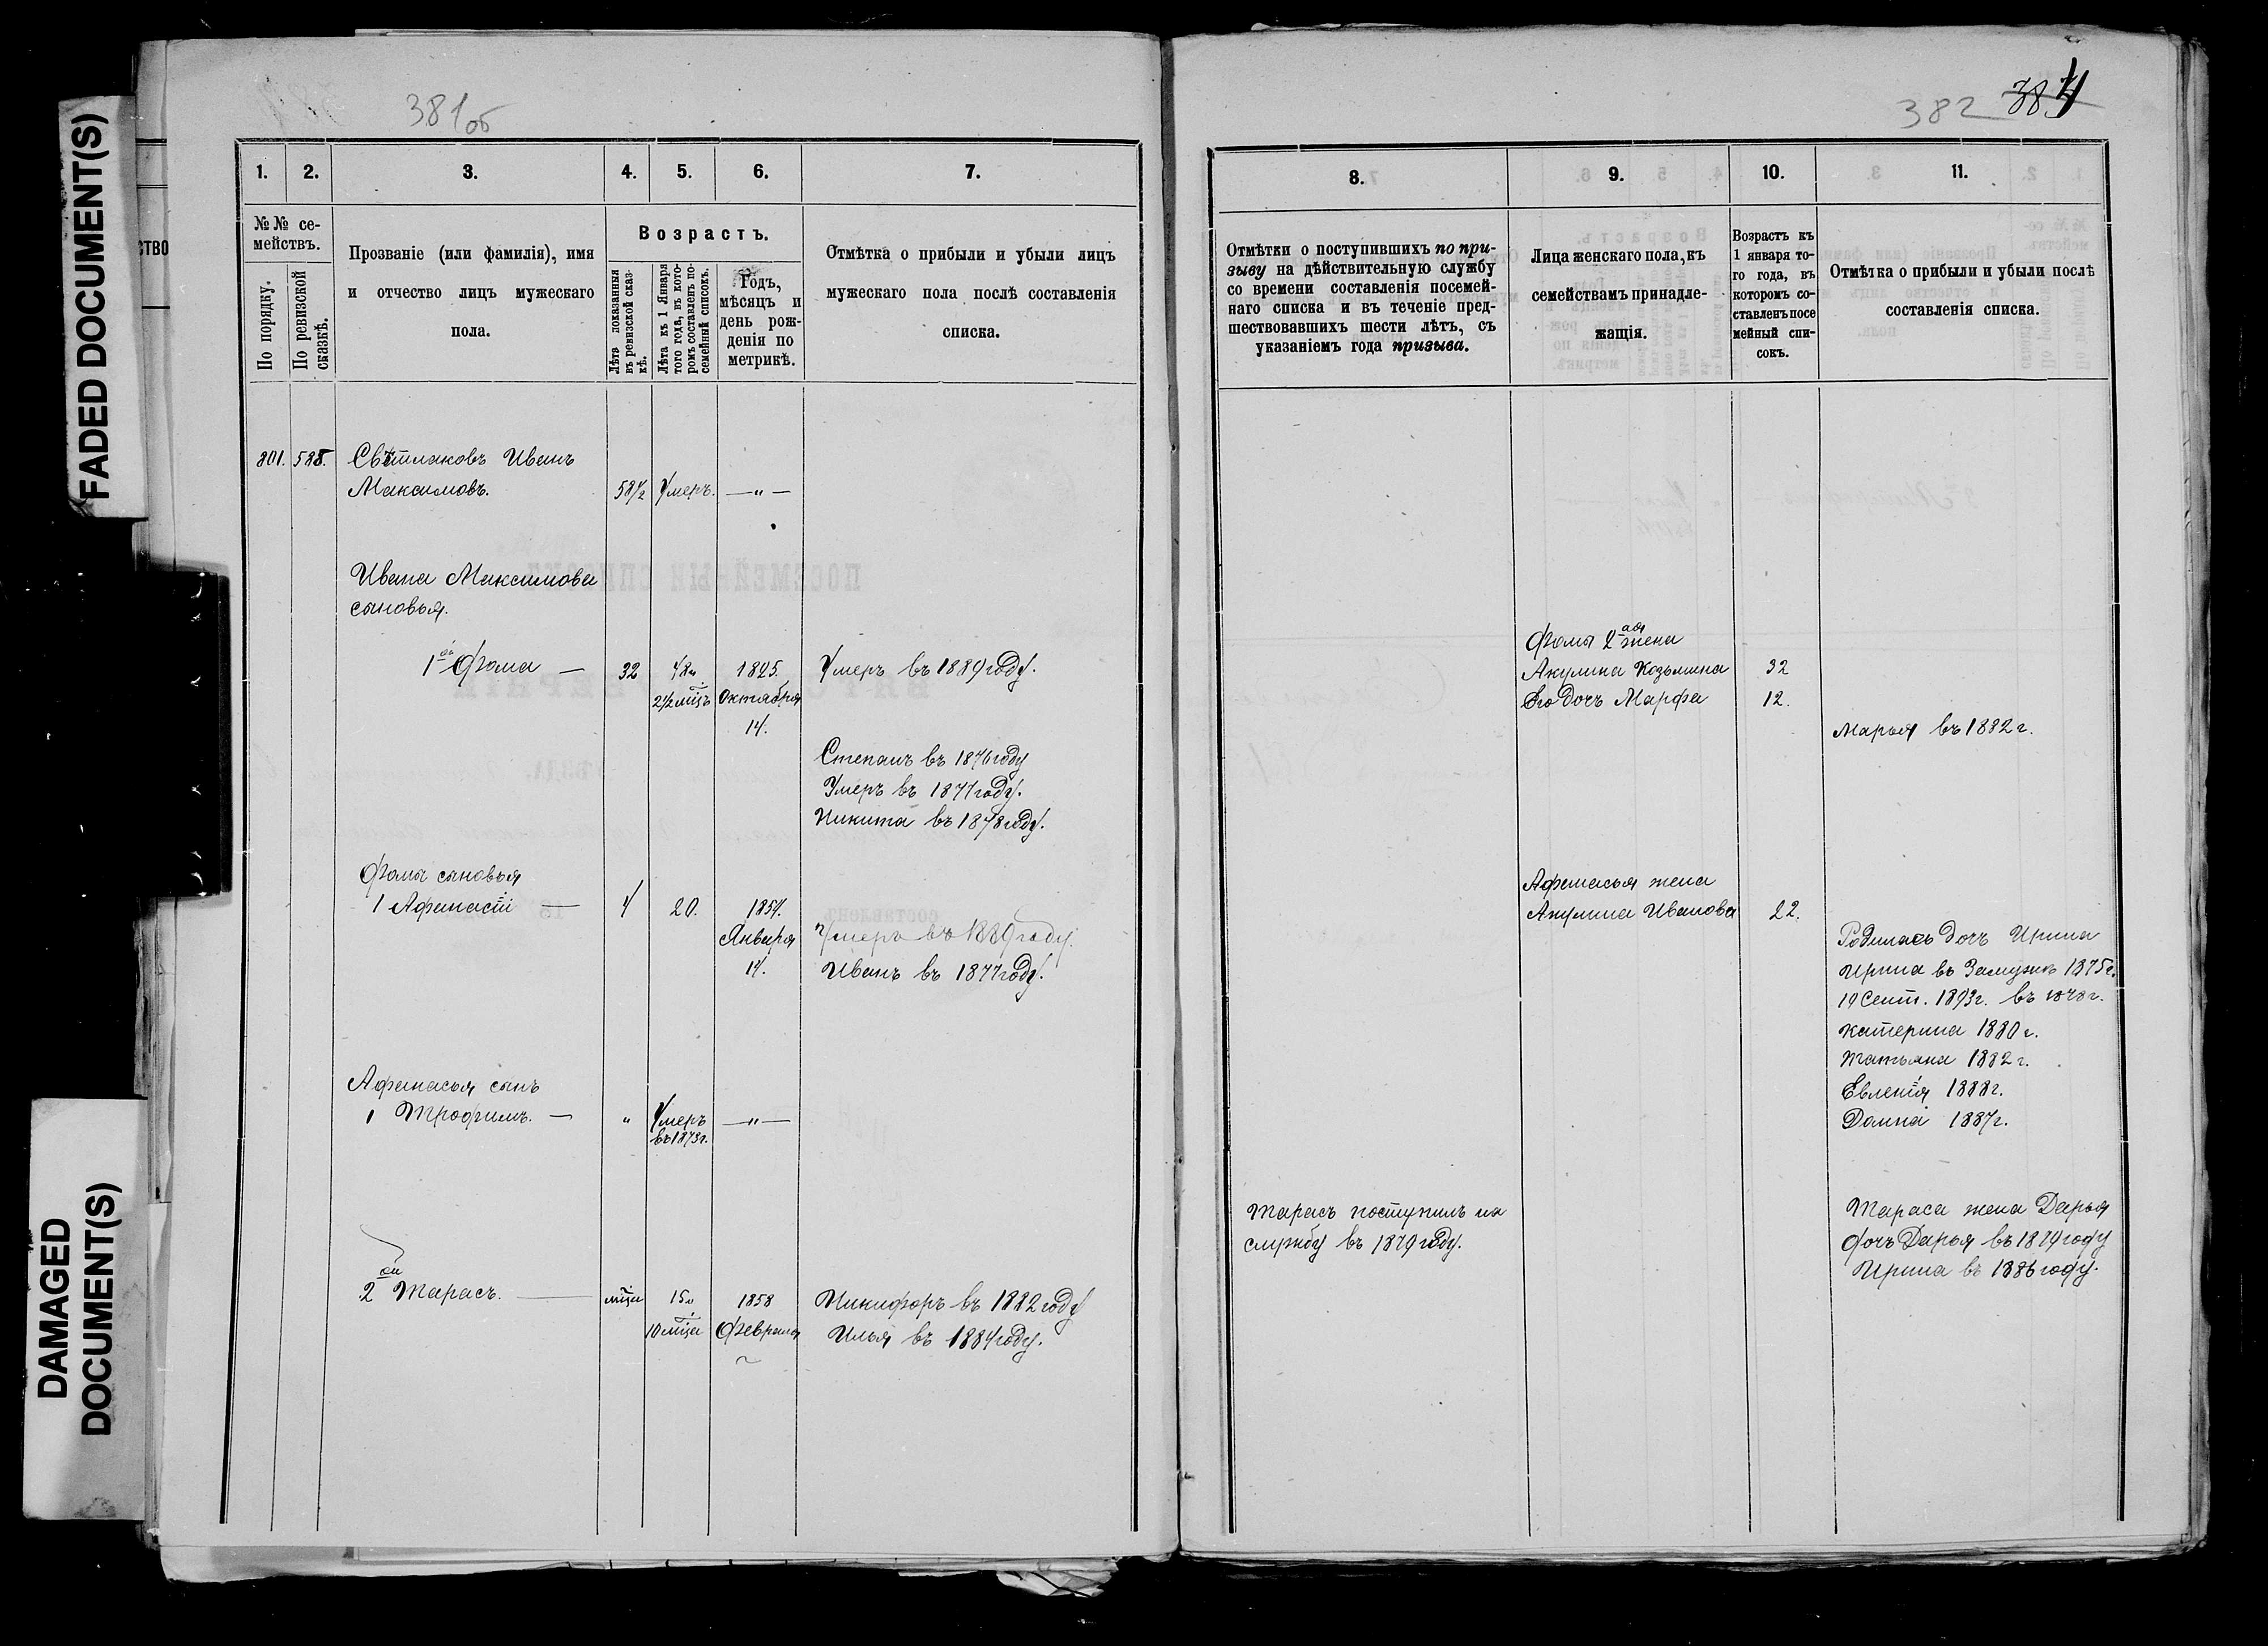 FADED DOCUMENT(S)
DAMAGED
DOCUMENT(S)
СТВО
381об
1.
2.
3.
4.
5.
6.
7.
№№ се-
мействъ.
По порядку.
По ревизской
сказкѣ.
Прозваніе (или фамилія), имя
и отчество лицъ мужескаго
пола.
Возрастъ.
Лѣта показанныя
въ ревизской сказ-
кѣ.
Лѣта къ 1 Января
того года, въ кото-
ромъ составленъ по-
семейный списокъ.
Годъ,
мѣсяцъ и
день рож-
денія по
метрикѣ.
Отмѣтка о прибыли и убыли лицъ
мужескаго пола послѣ составленія
списка.
801. 588. Свѣтлаковъ Иванъ
Максимовъ. 58½ Умеръ. — „ —
Ивана Максимова
сыновья.
1й Фома — 32 48 1825. Умеръ въ 1889 году.
2½ мцъ Октября
14.
Степанъ въ 1876 году
Умеръ въ 1877 году.
Никита въ 1878 году.
Фомы сыновья
1 Афанасій — 4 20. 1854.
Января Умеръ въ 1889 году.
14. Иванъ въ 1877 году.
Афанасья сынъ
1 Трофимъ. — „ Умеръ — „ —
въ 1873 г.
2ой Тарасъ. — мцъ 15 1858 Никифоръ въ 1882 году
10 мца Февраля Илья въ 1884 году.
382 384
8.
9.
10.
11.
Отмѣтки о поступившихъ по при-
зыву на дѣйствительную службу
со времени составленія посемей-
наго списка и въ теченіе пред-
шествовавшихъ шести лѣтъ, съ
указаніемъ года призыва.
Лица женскаго пола, къ
семействамъ принадле-
жащія.
Возрастъ къ
1 января то-
го года, въ
которомъ со-
ставленъ посе
мейный спи-
сокъ.
Отмѣтка о прибыли и убыли послѣ
составленія списка.
Фомы 2ая жена
Акулина Козьмина 32
Его дочь Марфа 12.
Марья въ 1882 г.
Афанасья жена
Акулина Иванова 22.
Родилась дочь Ирина
Ирина въ Замужъ 1875 г.
19 Сент. 1893 г. въ 1878 г.
Катерина 1880 г.
Татьяна 1882 г.
Евленія 1888 г.
Домна 1887 г.
Тарасъ поступилъ на
службу въ 1879 году.
Тараса жена Дарья
дочь Дарья въ 1879 году
Ирина въ 1886 году.